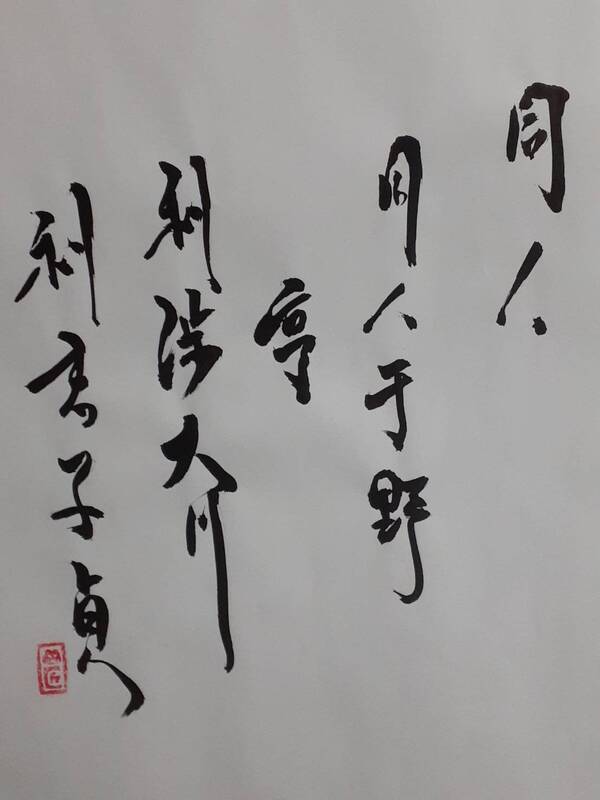 同人
同人于野
亨
利涉大川
利君子貞